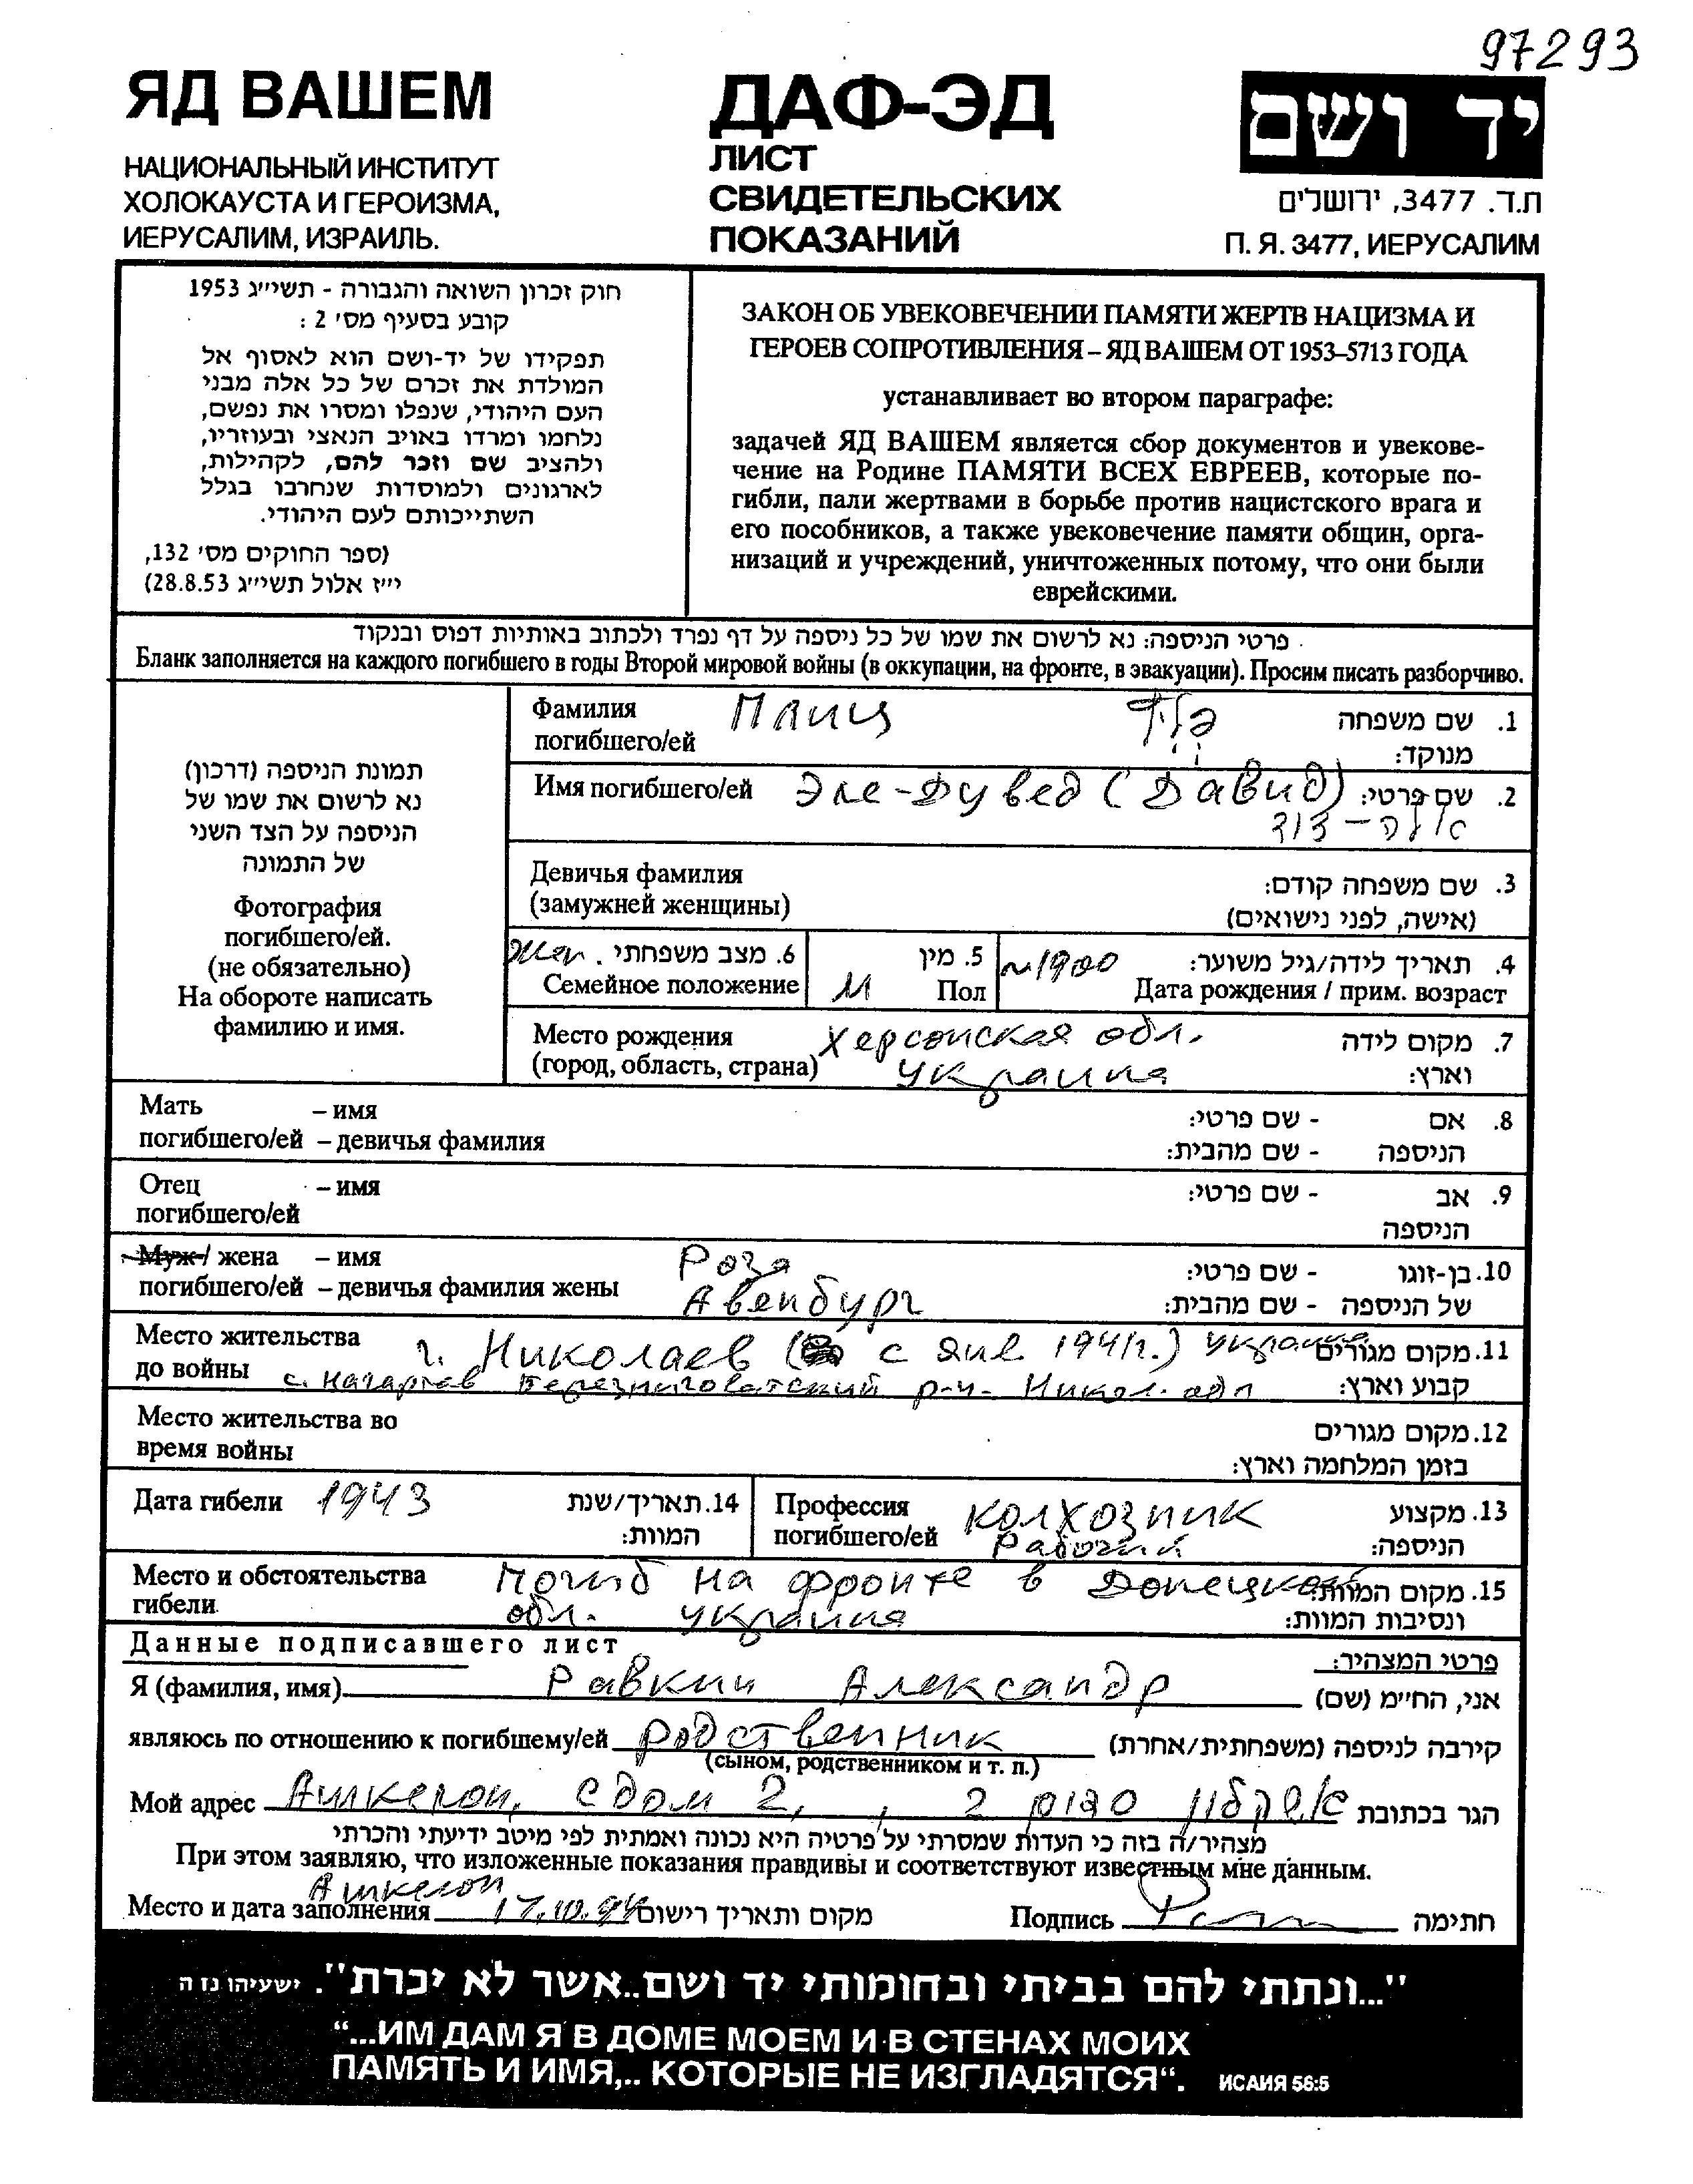 97293
ЯД ВАШЕМ
НАЦИОНАЛЬНЫЙ ИНСТИТУТ
ХОЛОКАУСТА И ГЕРОИЗМА,
ИЕРУСАЛИМ, ИЗРАИЛЬ.
ДАФ-ЭД
ЛИСТ
СВИДЕТЕЛЬСКИХ
ПОКАЗАНИЙ
יד ושם
ת.ד. 3477, ירושלים
П. Я. 3477, ИЕРУСАЛИМ
חוק זכרון השואה והגבורה - תשי״ג 1953
קובע בסעיף מס׳ 2 :
תפקידו של יד-ושם הוא לאסוף אל
המולדת את זכרם של כל אלה מבני
העם היהודי, שנפלו ומסרו את נפשם,
נלחמו ומרדו באויב הנאצי ובעוזריו,
ולהציב שם וזכר להם, לקהילות,
לארגונים ולמוסדות שנחרבו בגלל
השתייכותם לעם היהודי.
(ספר החוקים מס׳ 132,
י״ז אלול תשי״ג 28.8.53)
ЗАКОН ОБ УВЕКОВЕЧЕНИИ ПАМЯТИ ЖЕРТВ НАЦИЗМА И
ГЕРОЕВ СОПРОТИВЛЕНИЯ – ЯД ВАШЕМ ОТ 1953–5713 ГОДА
устанавливает во втором параграфе:
задачей ЯД ВАШЕМ является сбор документов и увекове-
чение на Родине ПАМЯТИ ВСЕХ ЕВРЕЕВ, которые по-
гибли, пали жертвами в борьбе против нацистского врага и
его пособников, а также увековечение памяти общин, орга-
низаций и учреждений, уничтоженных потому, что они были
еврейскими.
פרטי הניספה: נא לרשום את שמו של כל ניספה על דף נפרד ולכתוב באותיות דפוס ובנקוד
Бланк заполняется на каждого погибшего в годы Второй мировой войны (в оккупации, на фронте, в эвакуации). Просим писать разборчиво.
תמונת הניספה (דרכון)
נא לרשום את שמו של
הניספה על הצד השני
של התמונה
Фотография
погибшего/ей.
(не обязательно)
На обороте написать
фамилию и имя.
Фамилия Плиц שם משפחה .1
погибшего/ей מנוקד:
Имя погибшего/ей Эле-Дувед (Давид) שם פרטי: .2
אלה-דוד
Девичья фамилия שם משפחה קודם: .3
(замужней женщины) (אישה, לפני נישואים)
Жен. מצב משפחתי .6 מין .5 ~1900 תאריך לידה/גיל משוער: .4
Семейное положение М Пол Дата рождения / прим. возраст
Место рождения Херсонская обл. מקום לידה .7
(город, область, страна) Украина וארץ:
Мать – имя - שם פרטי: אם .8
погибшего/ей – девичья фамилия - שם מהבית: הניספה
Отец – имя - שם פרטי: אב .9
погибшего/ей הניספה
Муж / жена – имя Роза - שם פרטי: בן-זוגו .10
погибшего/ей – девичья фамилия жены Авенбург - שם מהבית: של הניספה
Место жительства г. Николаев ( с янв 1941г.) Украина מקום מגורים .11
до войны с. Нагартав Березниговатский р-н. Никол. обл קבוע וארץ:
Место жительства во מקום מגורים .12
время войны בזמן המלחמה וארץ:
Дата гибели 1943 תאריך/שנת .14 Профессия колхозник מקצוע .13
המוות: погибшего/ей Рабочий הניספה:
Место и обстоятельства Погиб на фронте в Донецкой מקום המוות: .15
гибели обл. Украина ונסיבות המוות:
Данные подписавшего лист פרטי המצהיר:
Я (фамилия, имя) Равкин Александр אני, החי״מ (שם)
являюсь по отношению к погибшему/ей родственник קירבה לניספה (משפחתית/אחרת)
(сыном, родственником и т. п.)
Мой адрес Ашкелон, Сдом 2, , 2 סדום אשקלון הגר בכתובת
מצהיר/ה בזה כי העדות שמסרתי על פרטיה היא נכונה ואמתית לפי מיטב ידיעתי והכרתי
При этом заявляю, что изложенные показания правдивы и соответствуют известным мне данным.
Ашкелон
Место и дата заполнения 17.10.94 מקום ותאריך רישום Подпись חתימה
"...ונתתי להם בביתי ובחומותי יד ושם..אשר לא יכרת". ישעיהו נז ה
“...ИМ ДАМ Я В ДОМЕ МОЕМ И В СТЕНАХ МОИХ
ПАМЯТЬ И ИМЯ,.. КОТОРЫЕ НЕ ИЗГЛАДЯТСЯ“. ИСАИЯ 56:5